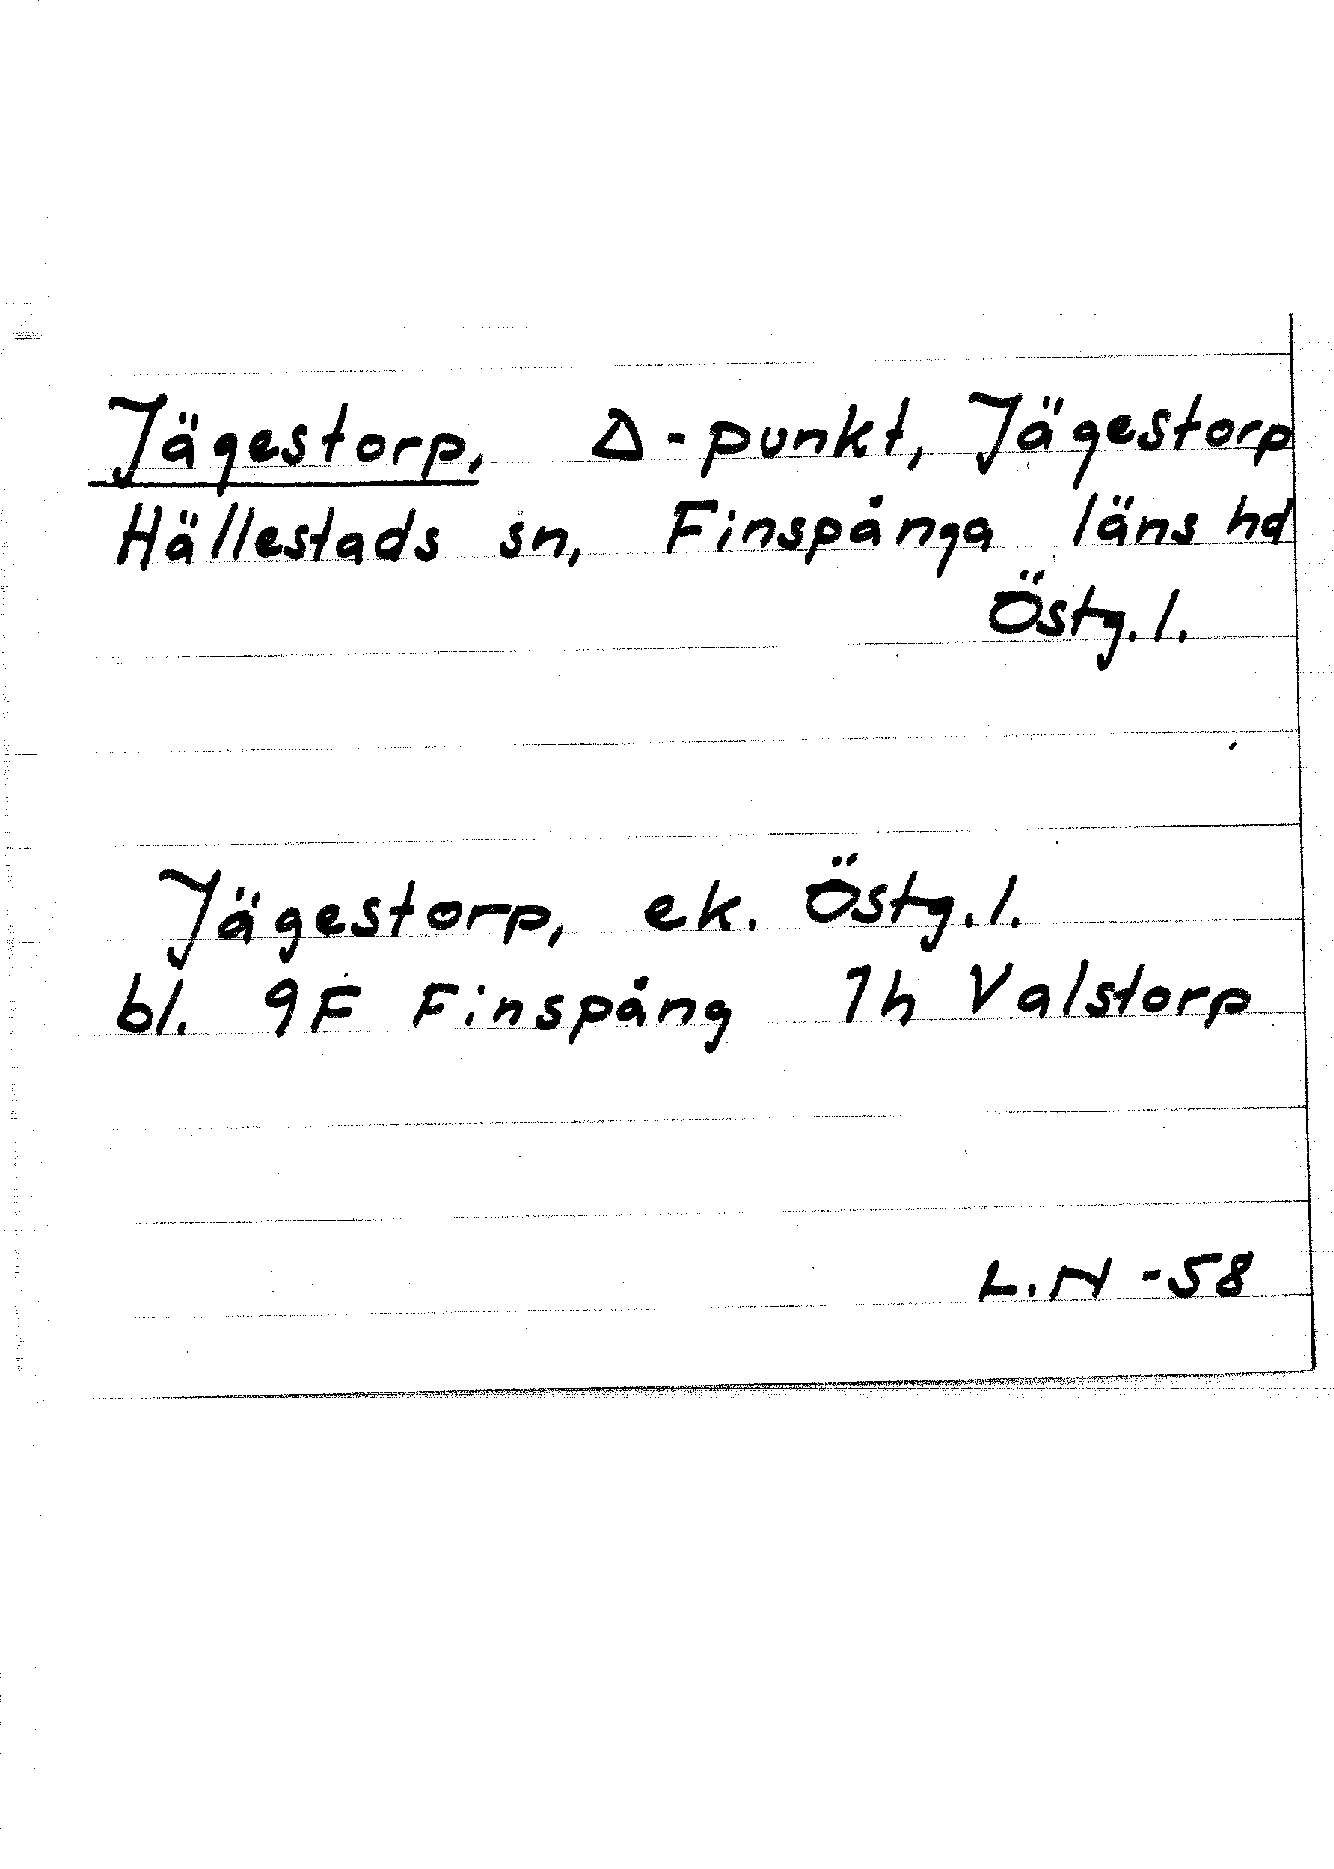 Jägestorp, Δ-punkt, Jägestorp
Hällestads sn, Finspånga läns hd
Östg. l.
Jägestorp, ek. Östg. l.
bl. 9F Finspång 1h Valstorp
L. N -58